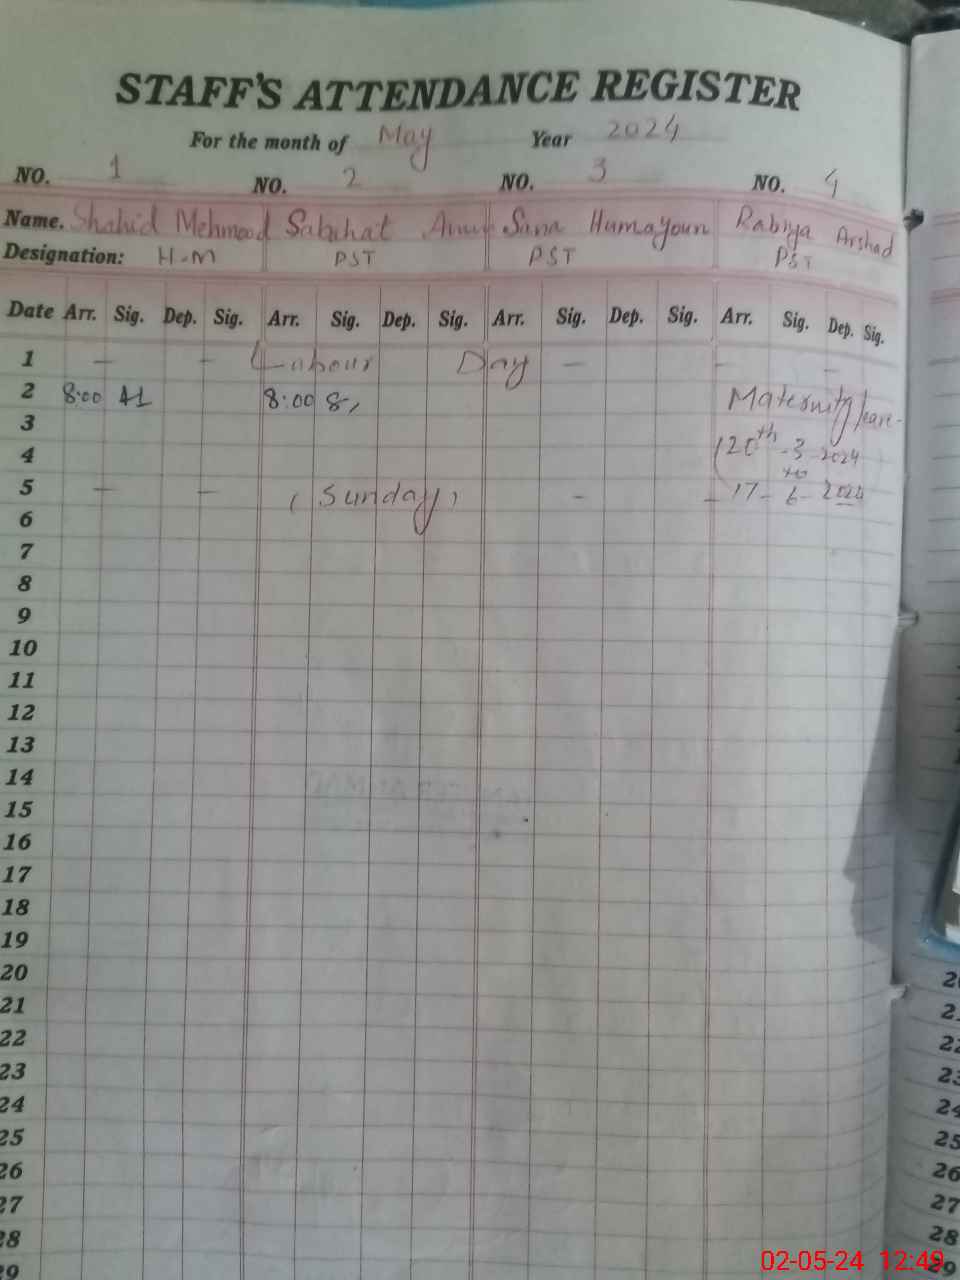 STAFF'S ATTENDANCE REGISTER
For the month of May Year 2024
NO. 1 NO. 2 NO. 3 NO. 4
Name. Shahid Mehmood Sabahat Sana Humayoun Rabiya Arshad
Designation: H.M PST PST PST
Date Arr. Sig. Dep. Sig. Arr. Sig. Dep. Sig. Arr. Sig. Dep. Sig. Arr. Sig. Dep. Sig.
1 - - Labour Day - - -
2 8:00 8:00 Maternity leave-
3
4 (20th -3-2024
to
5 - - (Sunday) - - 17-6-2024
6
7
8
9
10
11
12
13
14
15
16
17
18
19
20 20
21 21
22 22
23 23
24 24
25 25
26 26
27 27
28 28
29 29
02-05-24 12:49